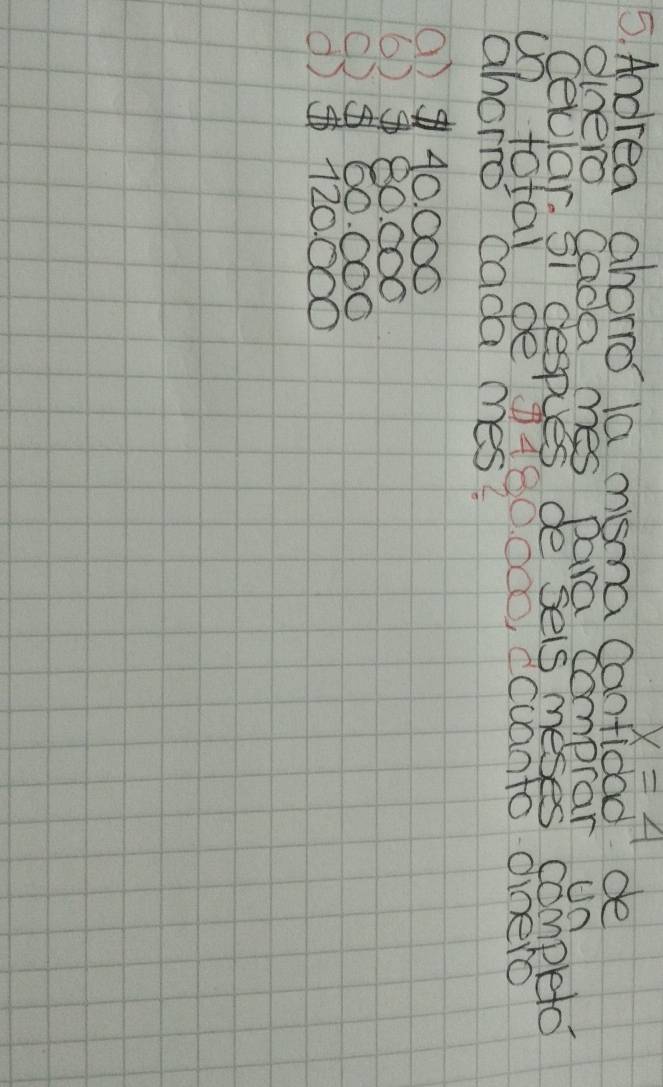 x = 4
5. Andrea ahorró la misma cantidad de
dinero cada mes para comprar un
celular. Si después de seis meses completó
un total de $480.000, ¿cuanto dinero
ahorró cada mes?
a) $ 40.000
b) $ 80.000
c) $ 60.000
d) $ 120.000